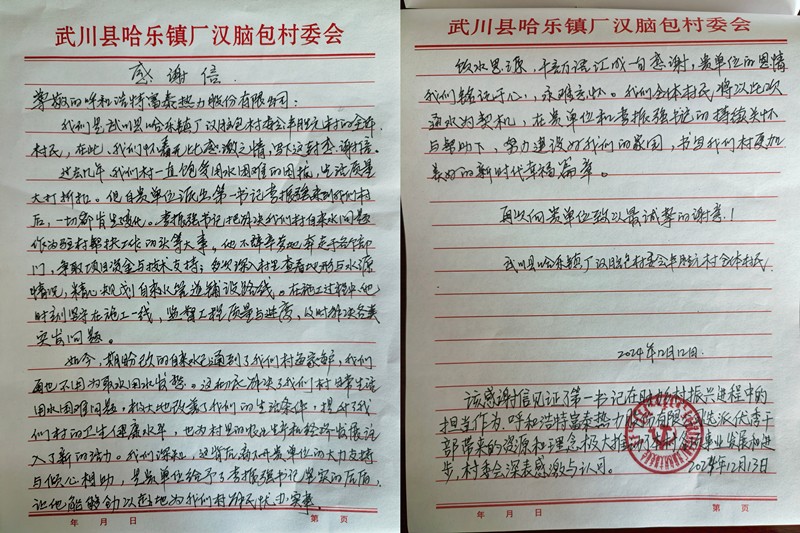 武川县哈乐镇厂汉脑包村委会
感谢信
尊敬的呼和浩特富泰热力股份有限公司：
我们是武川县哈乐镇厂汉脑包村委会半胜元村的全体
村民，在此，我们怀着无比感激之情，写下这封感谢信。
过去几年，我们村一直饱受用水困难的困扰，生活质量
大打折扣。但自贵单位派出第一书记李振强来到我们村
后，一切都有了变化。李振强书记把解决我们村自来水问题
作为驻村帮扶工作的头等大事，他不辞辛劳地奔走于各个部
门，争取项目资金与技术支持；多次深入村里查看地形与水源
情况，精心规划自来水管道铺设路线。在施工过程中，他
时刻坚守在施工一线，监督工程质量与进度，及时解决各类
突发问题。
如今，期盼已久的自来水已通到了我们村每家每户，我们
再也不用为取水用水发愁。这彻底解决了我们村日常生活
用水困难问题，极大地改善了我们的生活条件，提升了我
们村的卫生健康水平，也为村里的农业生产和经济发展注
入了新的活力。我们深知，这背后离不开贵单位的大力支持
与倾心相助，是贵单位给予了李振强书记坚实的后盾，
让他能够全力以赴地为我们村的民忧办实事。
年 月 日 第 页
武川县哈乐镇厂汉脑包村委会
饮水思源，千言万语汇成一句感谢，贵单位的恩情
我们铭记于心，永难忘怀。我们全体村民将以此次
通水为契机，在贵单位和李振强书记的持续关怀
与帮助下，努力建设好我们的家园，书写我们村更加
美好的新时代幸福篇章。
再次向贵单位致以最诚挚的谢意！
武川县哈乐镇厂汉脑包村委会半胜元村全体村民
2024年12月12日.
该感谢信见证了第一书记在助力乡村振兴进程中的
担当作为，呼和浩特富泰热力股份有限公司选派优秀干
部带来的资源和理念，极大推动了事业发展和进
步，村委会深表感激与认可。
2024年12月13日
年 月 日 第 页